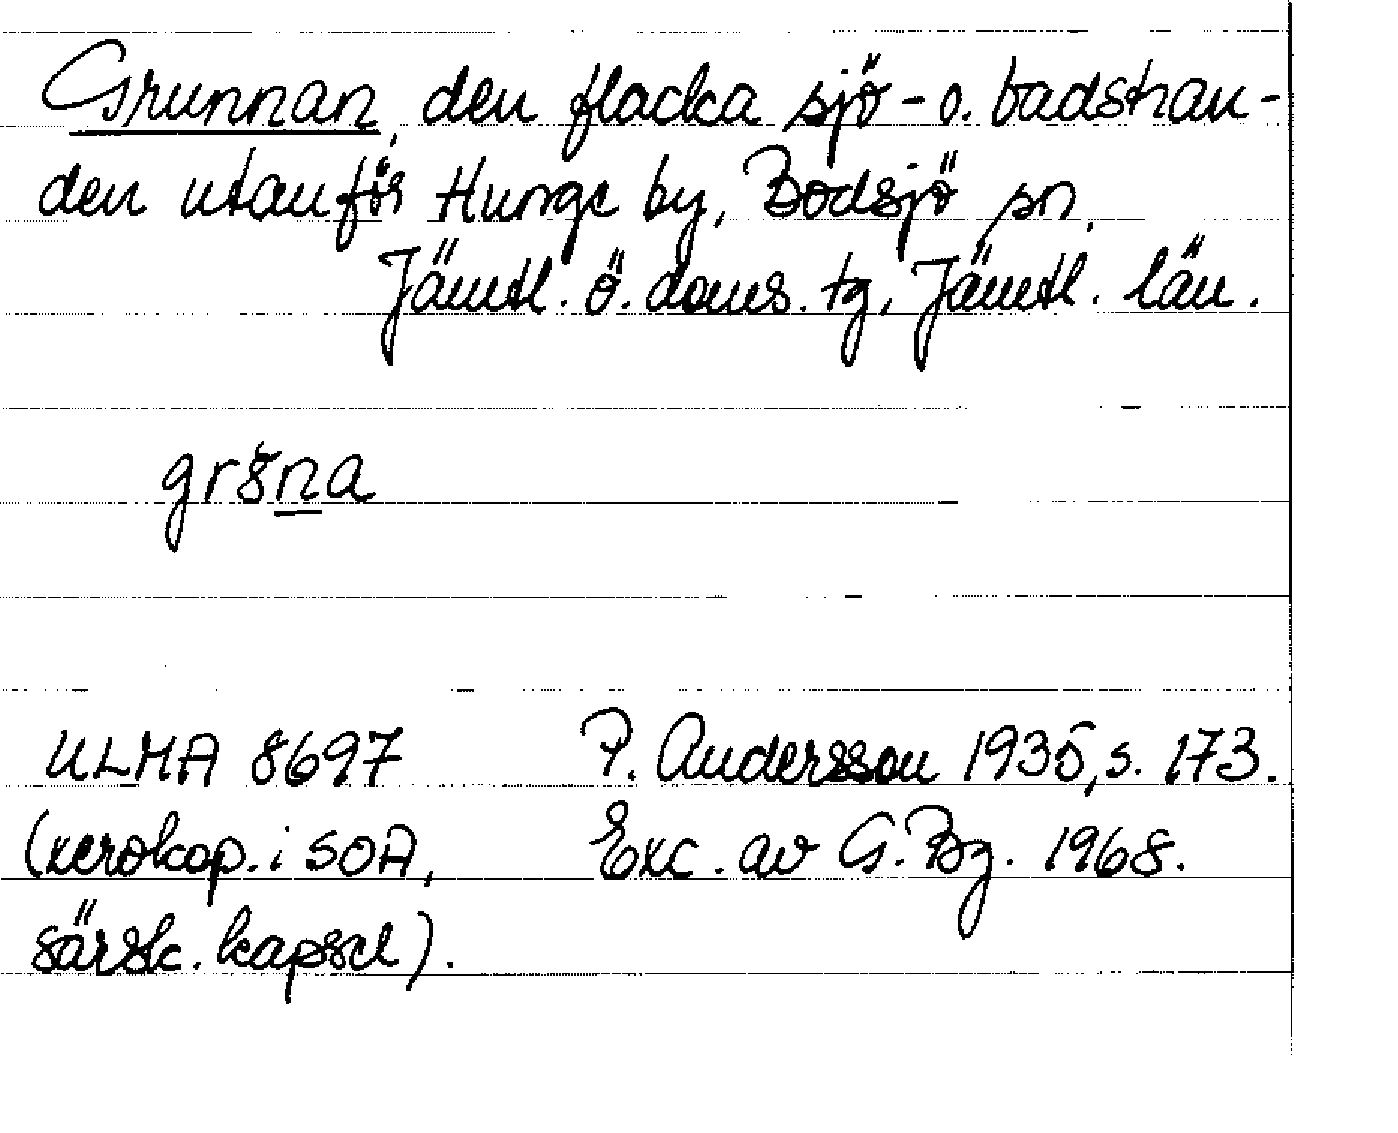 Grunnan, den flacka sjö- o. badstran-
den utanför Hunge by, Bodsjö sn,
Jämtl. ö. doms. tg, Jämtl. län.
ULMA 8697 P. Andersson 1935, s. 173.
(xerokop. i SOA, Exc. av G. Bg. 1968.
särsk. kapsel).